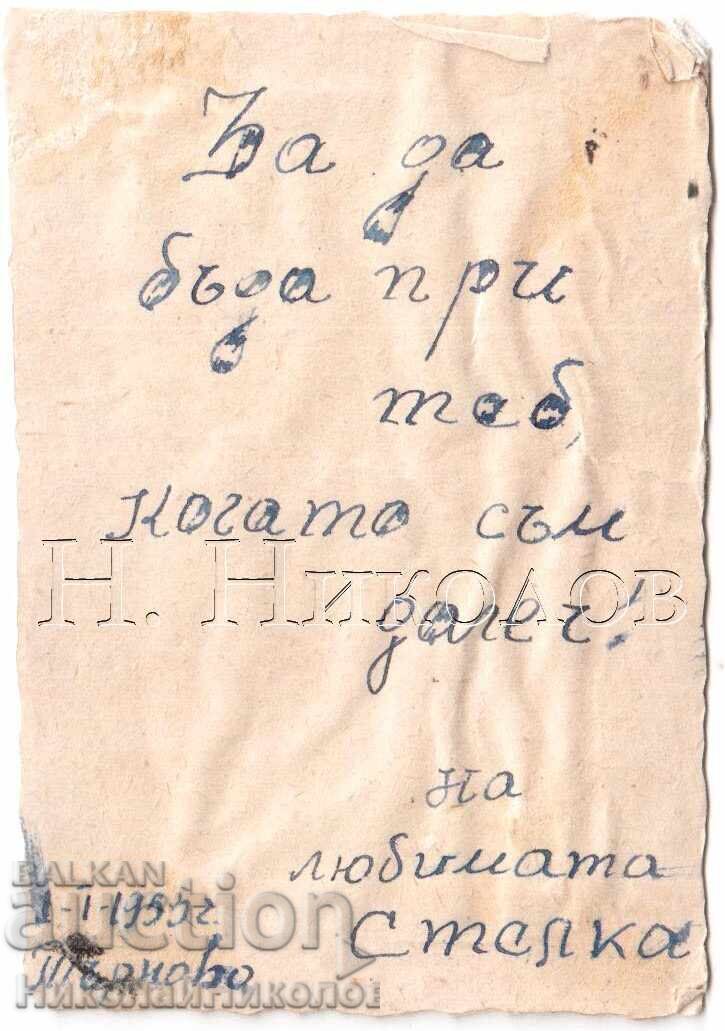 За да
бъда при
теб,
когато съм
Н. Николов
далеч!
на
любимата
Стелка
BALKAN
auction
1-I-1955 г.
Търново
НиколайНиколов